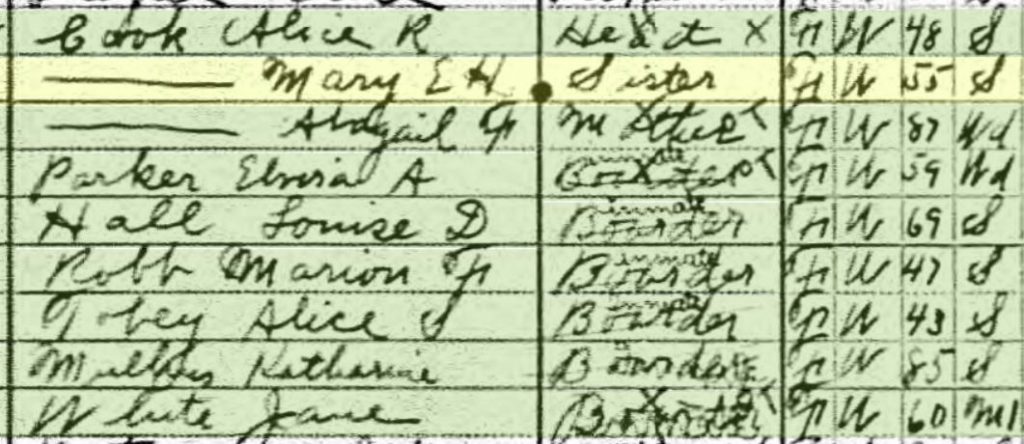 Cook Alice R Head X F W 48 S
Mary E H Sister F W 55 S
Abigail F Mother F W 87 Wd
Parker Elvira A inmate Boarder F W 59 Wd
Hall Louise D inmate Boarder F W 69 S
Robb Marion F inmate Boarder F W 47 S
Tobey Alice S inmate Boarder F W 43 S
Katharine Boarder F W 85 S
White Jane Boarder F W 60 M1